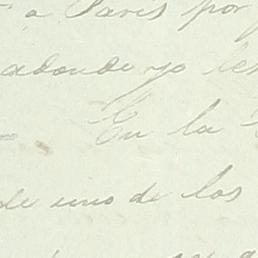 a Paris por
adonde yo les
En la
de uno de los